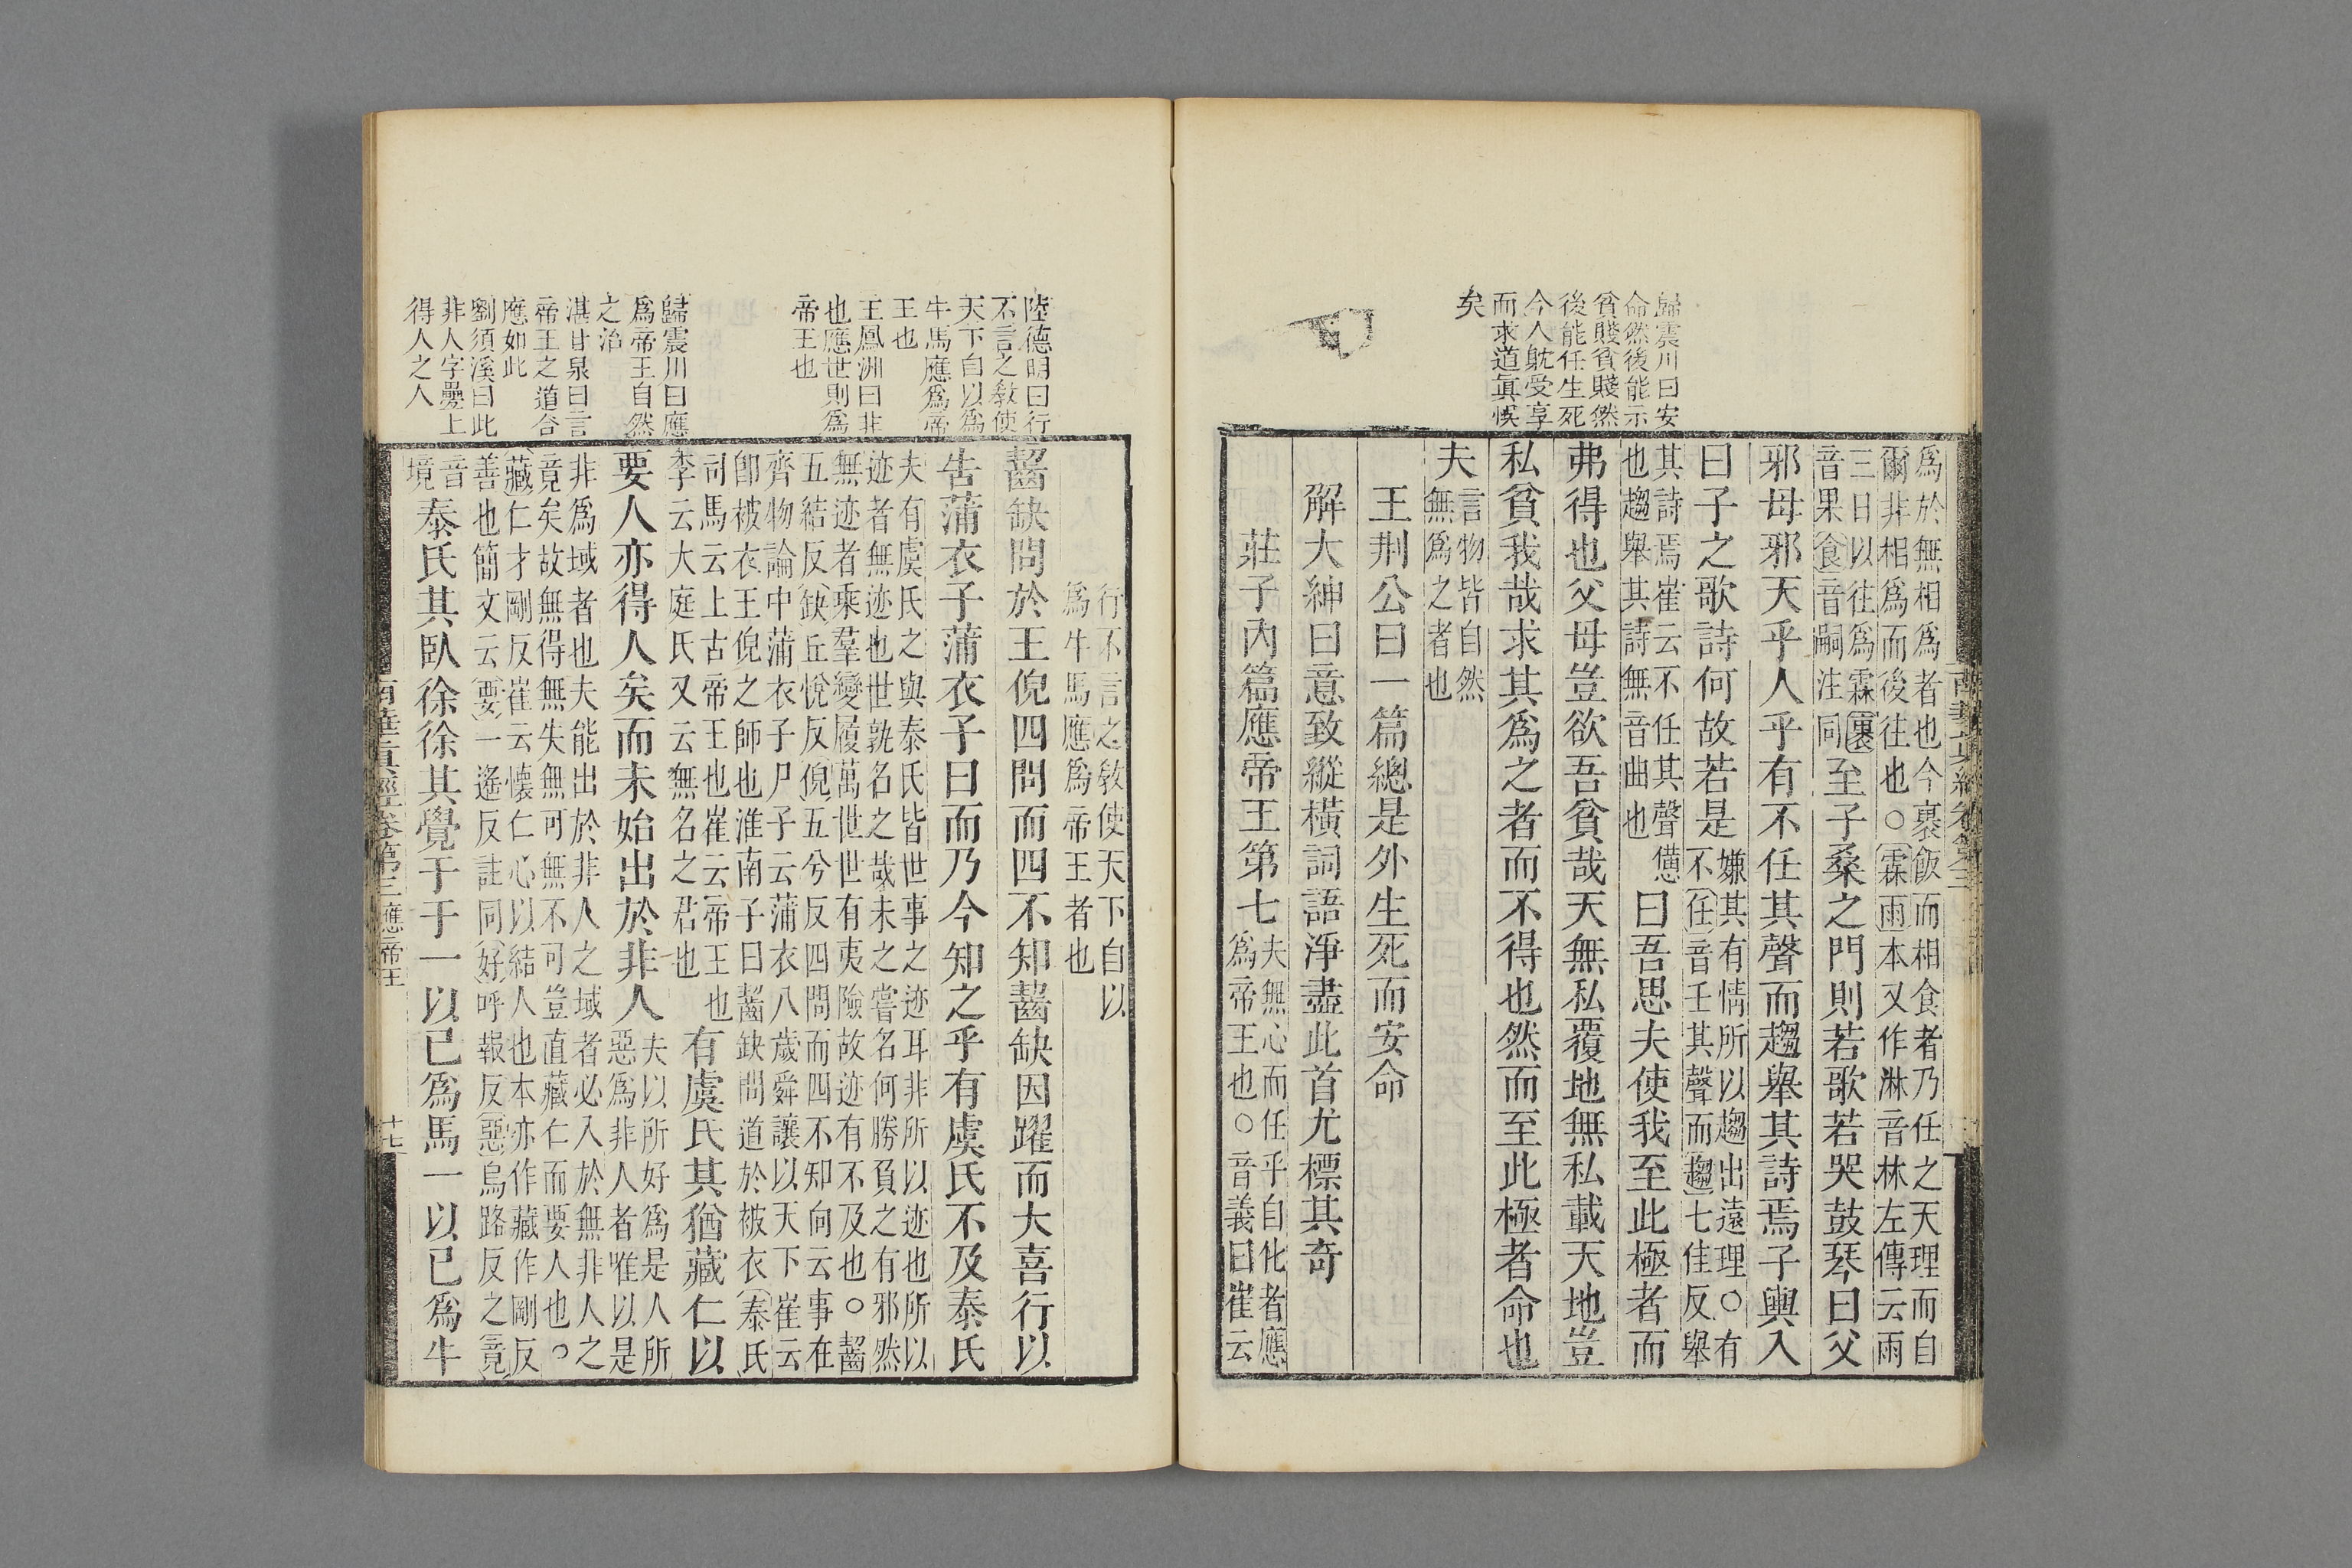 歸震川曰安
命然後能示
貧賤貧賤然
後能任生死
今人躭受享
而求道眞悞
矣
爲於無相爲者也今裹飯而相食者乃任之天理而自
爾非相爲而後往也○霖雨本又作淋音林左傳云雨
三日以往爲霖裹
音果食音嗣注同
至子桑之門則若歌若哭鼓琴曰父
邪母邪天乎人乎有不任其聲而趨舉其詩焉子輿入
曰子之歌詩何故若是
嫌其有情所以趨出遠理○有
不任音壬其聲而趨七住反舉
其詩焉崔云不任其聲憊
也趨舉其詩無音曲也
曰吾思夫使我至此極者而
弗得也父母豈欲吾貧哉天無私覆地無私載天地豈
私貧我哉求其爲之者而不得也然而至此極者命也
夫
言物皆自然
無爲之者也
王荆公曰一篇總是外生死而安命
解大紳曰意致縱橫詞語淨盡此首尤標其奇
莊子內篇應帝王第七
夫無心而任乎自化者應
爲帝王也○音義曰崔云
南華眞經卷第三
陸德明曰行
不言之敎使
天下自以爲
牛馬應爲帝
王也
王鳳洲曰非
也應世則爲
帝王也
歸震川曰應
爲帝王自然
之治
湛甘泉曰言
帝王之道合
應如此
劉須溪曰此
非人字疊上
得人之人
行不言之敎使天下自以
爲牛馬應爲帝王者也
齧缺問於王倪四問而四不知齧缺因躍而大喜行以
告蒲衣子蒲衣子曰而乃今知之乎有虞氏不及泰氏
夫有虞氏之與泰氏皆世事之迹耳非所以迹也所以
迹者無迹也世孰名之哉未之嘗名何勝負之有邪然
無迹者乘羣變履萬世世有夷險故迹有不及也○齧
五結反缺丘悅反倪五兮反四問而四不知向云事在
齊物論中蒲衣子尸子云蒲衣八歲舜讓以天下崔云
卽被衣王倪之師也淮南子曰齧缺問道於被衣泰氏
司馬云上古帝王也崔云帝王也
李云大庭氏又云無名之君也
有虞氏其猶藏仁以
要人亦得人矣而未始出於非人
夫以所好爲是人所
惡爲非人者唯以是
非爲域者也夫能出於非人之域者必入於無非人之
竟矣故無得無失無可無不可豈直藏仁而要人也○
藏仁才剛反崔云懷仁心以結人也本亦作臧作剛反
善也簡文云要一遙反註同好呼報反惡烏路反之竟
音
境
泰氏其臥徐徐其覺于于一以已爲馬一以已爲牛
南華眞經卷第三應帝王
十七